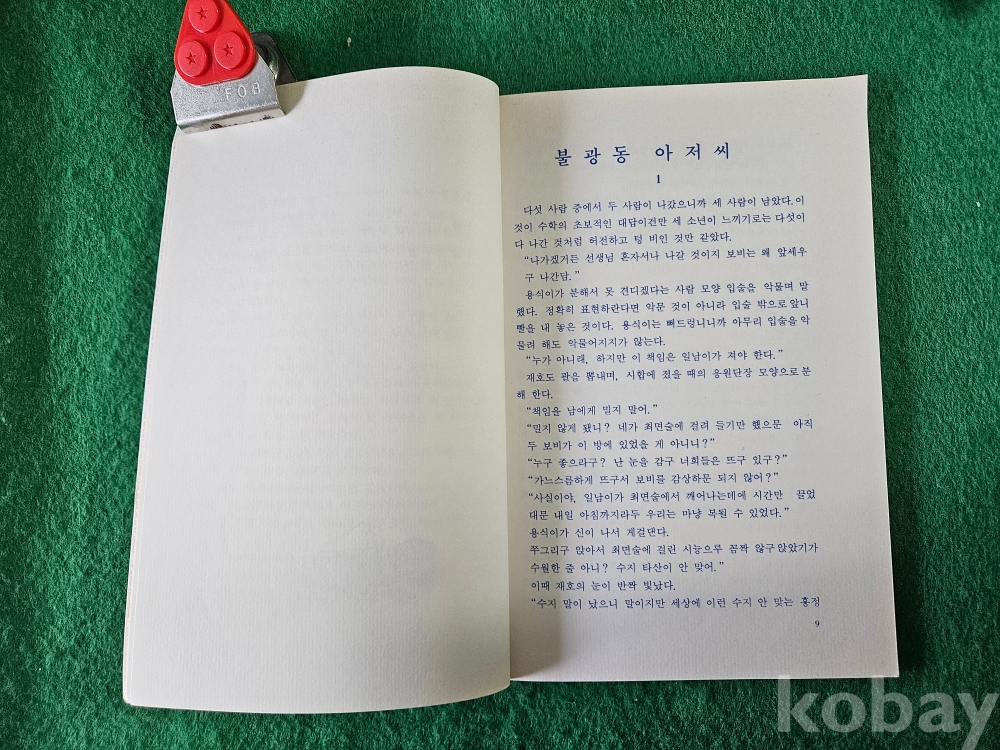 FOB
불광동 아저씨
1
다섯 사람 중에서 두 사람이 나갔으니까 세 사람이 남았다. 이
것이 수학의 초보적인 대답이건만 세 소년이 느끼기로는 다섯이
다 나간 것처럼 허전하고 텅 비인 것만 같았다.
“나가겠거든 선생님 혼자서나 나갈 것이지 보비는 왜 앞세우
구 나간담.”
용식이가 분해서 못 견디겠다는 사람 모양 입술을 악물며 말
했다. 정확히 표현하란다면 악문 것이 아니라 입술 밖으로 앞니
빨을 내 놓은 것이다. 용식이는 뻐드렁니니까 아무리 입술을 악
물려 해도 악물어지지가 않는다.
“누가 아니래, 하지만 이 책임은 일남이가 져야 한다.”
재호도 팔을 뽐내며, 시합에 졌을 때의 응원단장 모양으로 분
해 한다.
“책임을 남에게 밀지 말어.”
“밀지 않게 됐니? 네가 최면술에 걸려 들기만 했으문 아직
두 보비가 이 방에 있었을 게 아니니?”
“누구 좋으라구? 난 눈을 감구 너희들은 뜨구 있구?”
“가느스름하게 뜨구서 보비를 감상하문 되지 않어?”
“사실이야, 일남이가 최면술에서 깨어나는데에 시간만 끌었
대문 내일 아침까지라두 우리는 마냥 목될 수 있었다.”
용식이가 신이 나서 게걸댄다.
쭈그리구 앉아서 최면술에 걸린 시능으루 꼼짝 않구 앉았기가
수월한 줄 아니? 수지 타산이 안 맞어.”
이때 재호의 눈이 반짝 빛났다.
“수지 말이 났으니 말이지만 세상에 이런 수지 안 맞는 흥정
9
kobay